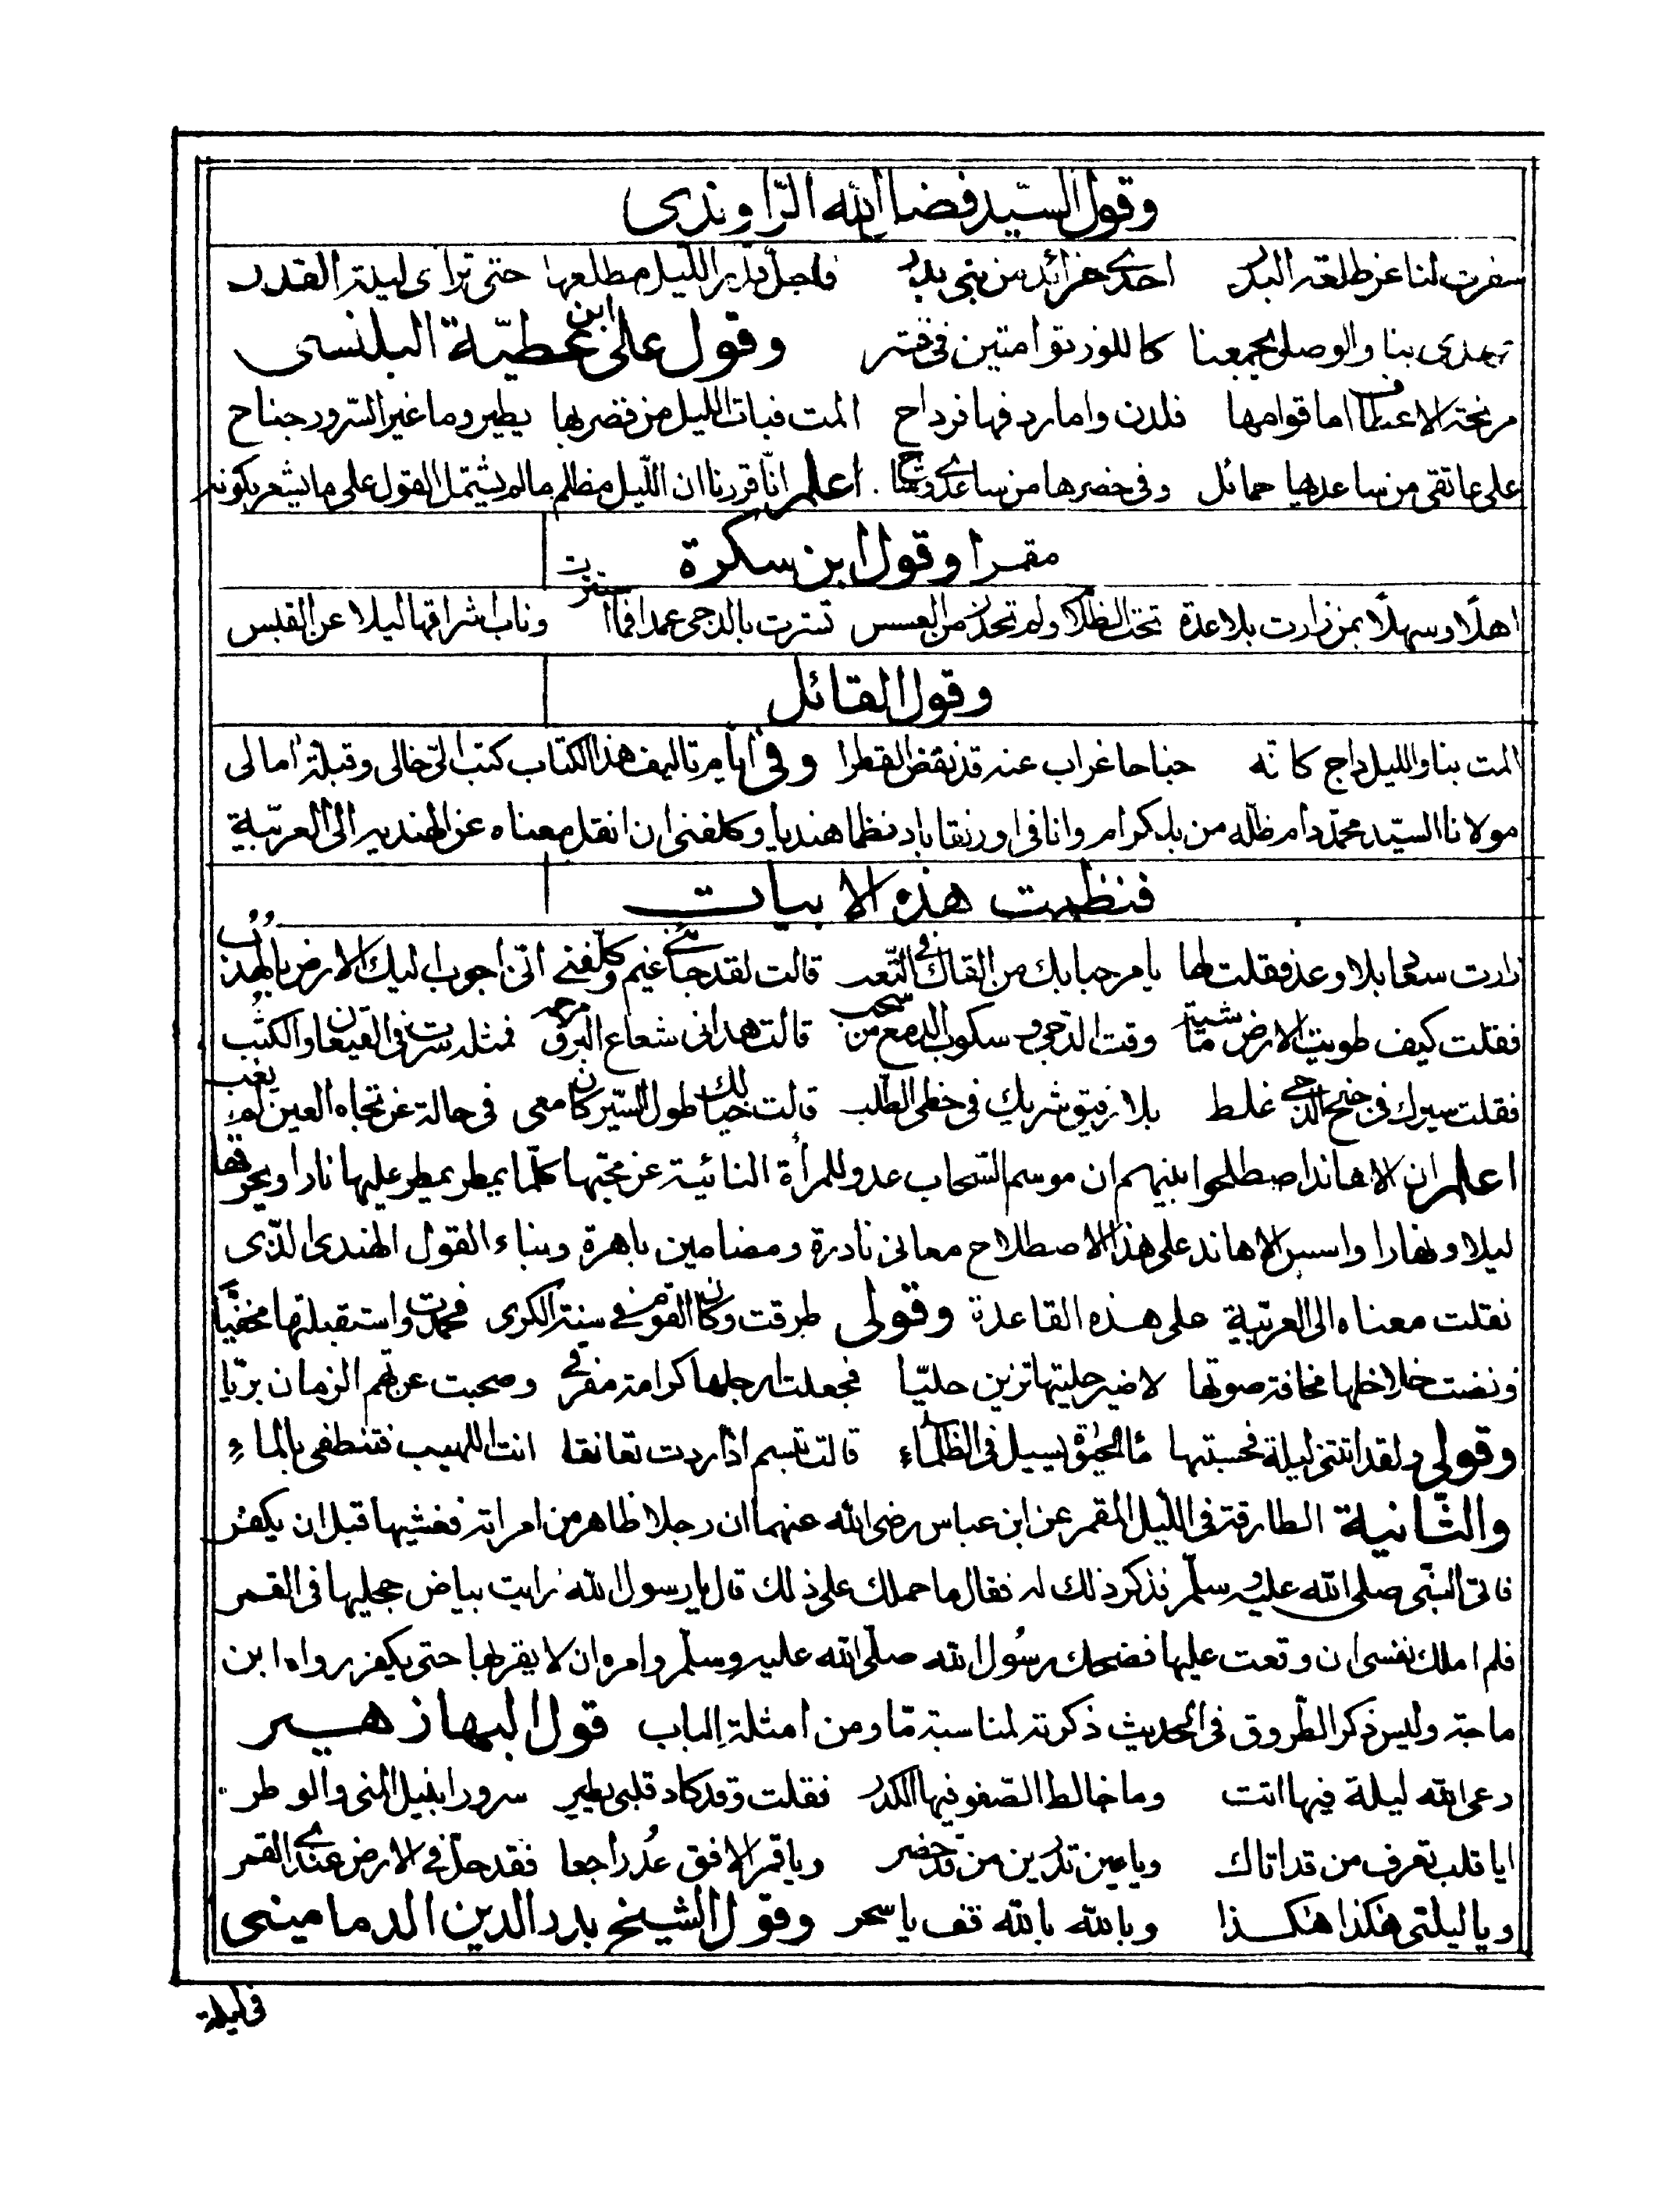 وقول السيد فضل الله الراوندى
سفرت لنا عن طلعة البدر احدى خرائد من بنى بدر فاجل قدر الليل مطلعها حتى تراءى ليلة القدر
تهدى بنا والوصل يجمعنا كاللوز توامتين فى قشر وقول على ابن عطيّة البلنسى
مرنحة الاعطاف اما قوامها فلدن واما ردفها فرداح المت فبات الليل من قصر بها يطير وما غير السّرور جناح
على عاتقى من ساعديها حمائل وفى خصرها من ساعدى وشاح اعلم انّا قررنا ان اللّيل مظلم ما لم يشتمل القول على ما يشعر بكونه
مقمرا وقول ابن سكرة
اهلًا وسهلًا بمن زارت بلا عدة تحت الظلام ولم تحذر من العسس تسترت بالدجى عمدا فما استترت وناب اشراقها ليلا عن القبس
وقول القائل
المت بنا والليل داج كانّه جناحا غراب عنه قد نفض القطرا وفى ايام تاليف هذا الكتاب كتب الىّ خالى وقبلة امالى
مولانا السيّد محمّد دام ظلّه من بلكرام وانا فى اورنقاباد نظما هنديا وكلفنى ان انقل معناه عن الهندية الى العربيّة
فنظمت هذه الابيات
زارت سعا بلا وعد فقلت لها يا مرحبا بك من القاك فى التّعب قالت لقد جاءنى غيم وكلّفنى انّى اجوب اليك الارض بالهذب
فقلت كيف طويت الارض ماشية وقت الدّجى وسكوب الدمع من سحب قالت هدانى شعاع البرق مرحمة فمثله سرت فى القيعان والكثب
فقلت سيرك فى جنح الدّجى غلط بلا رفيق شريك فى خطى الطّلب قالت خيالك طول السّير كان معى فى حالة عن تجاه العين لم يغب
اعلم ان الاهاند اصطلحوا بينهم ان موسم السّحاب عدو للمرأة النائية عن محبّها كلّما يمطر يمطر عليها نارا ويحرقها
ليلا ونهارا واسس الاهاند على هذا الاصطلاح معانى نادرة ومضامين باهرة وبناء القول الهندى الّذى
نقلت معناه الى العربيّة على هذه القاعدة وقولى طرقت وكان القوم فى سنة الكرى فحمدت واستقبلتها مخفيّا
ونضت خلاخلها مخافة صوتها لا ضير حليتها تزين حليّا فجعلت ارجلها كرامة مفرقى وصحبت عن تهم الزمان بريّا
وقولى ولقد اتتنى ليلة فحسبتها ماء الحيوة يسيل فى الظلماء قالت تبسم اذ اردت تعانقا انت اللهيب فتنطفى بالماء
والثّانية الطارقة فى اللّيل المقمر عن ابن عباس رضى الله عنهما ان رجلا ظاهر من امراته فغشيها قبل ان يكفر
فاتى النبّى صلى الله عليه وسلّم فذكر ذلك له فقال ما حملك على ذلك قال يا رسول الله رايت بياض حجليها فى القمر
فلم املك نفسى ان وقعت عليها فضحك رسُول الله صلّى الله عليه وسلّم وامره ان لا يقربها حتى يكفر رواه ابن
ماجة وليس ذكر الطّروق فى الحديث ذكرته لمناسبة مّا ومن امثلة الباب قول البها زهير
رعى الله ليلة فيها اتت وما خالط الصّفو فيها الكدر فقلت وقد كاد قلبى يطير سرورا بنيل المنى والوطر
ايا قلب تعرف من قد اتاك ويا عين تدرين من قد حضر ويا قمر الافق عُد راجعا فقد حلّ فى الارض عندى القمر
ويا ليلتى هكذا هكذا وبالله بالله قف يا سحر وقول الشيخ بدر الدين الدمامينى
فى ليلة